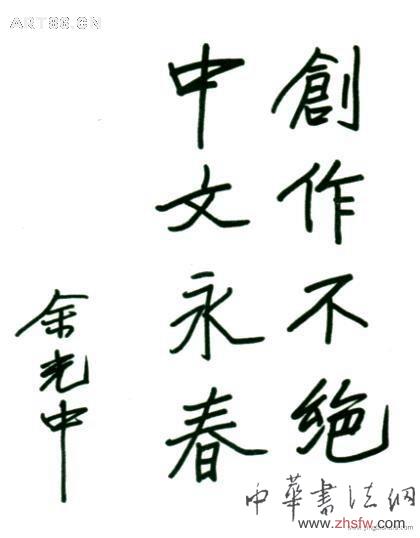 創作不絶
中文永春
余光中
ART86.CN
中華書法網
www.zhsfw.com